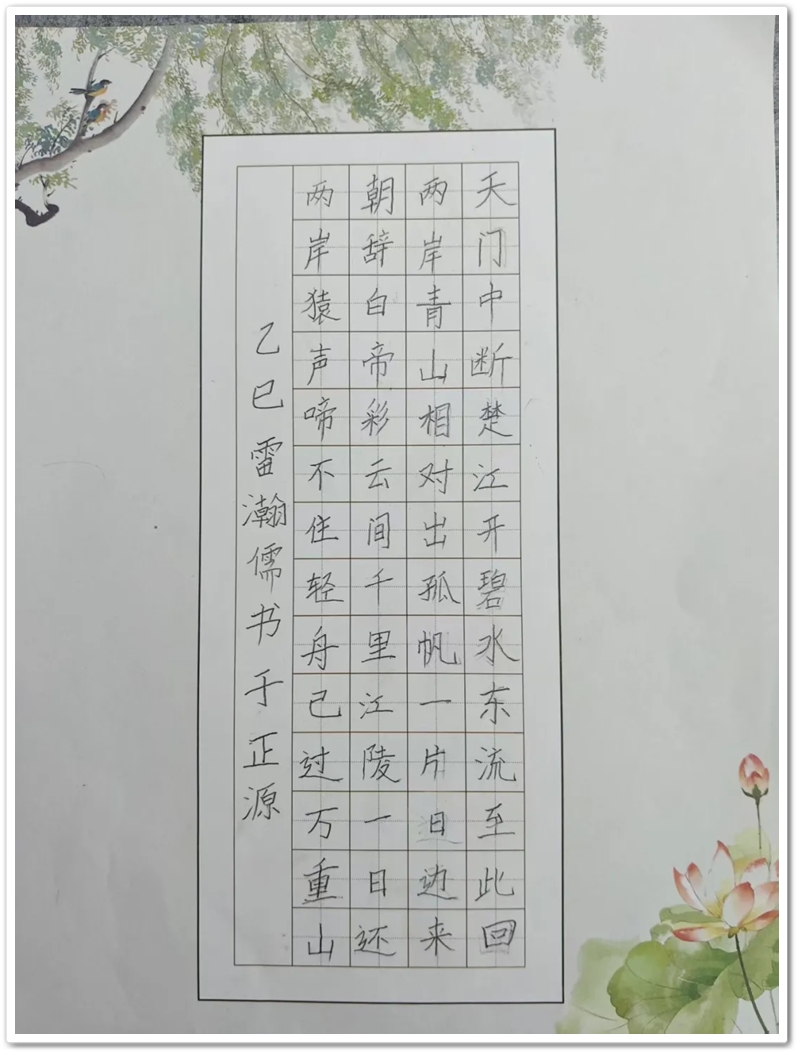 天门中断楚江开碧水东流至此回
两岸青山相对出孤帆一片日边来
朝辞白帝彩云间千里江陵一日还
两岸猿声啼不住轻舟已过万重山
乙巳雷瀚儒书于正源